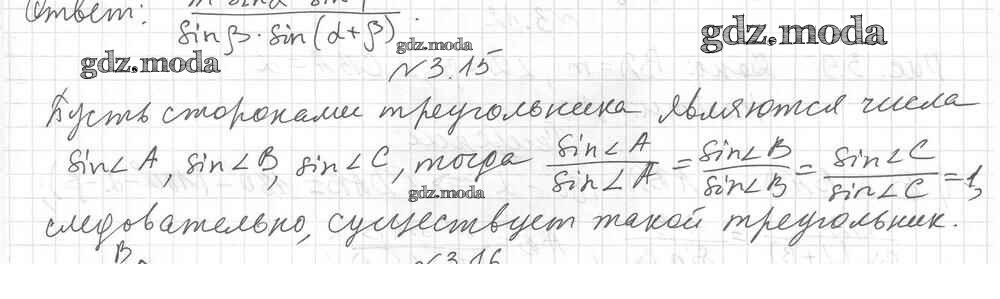 Ответ:
sinβ·sin(α+β)
gdz.moda
gdz.moda
gdz.moda
№3.15
Пусть сторонами треугольника являются числа
sin∠A, sin∠B, sin∠C, тогда sin∠A/sin∠A = sin∠B/sin∠B = sin∠C/sin∠C = 1,
gdz.moda
следовательно, существует такой треугольник.
B
№3.16